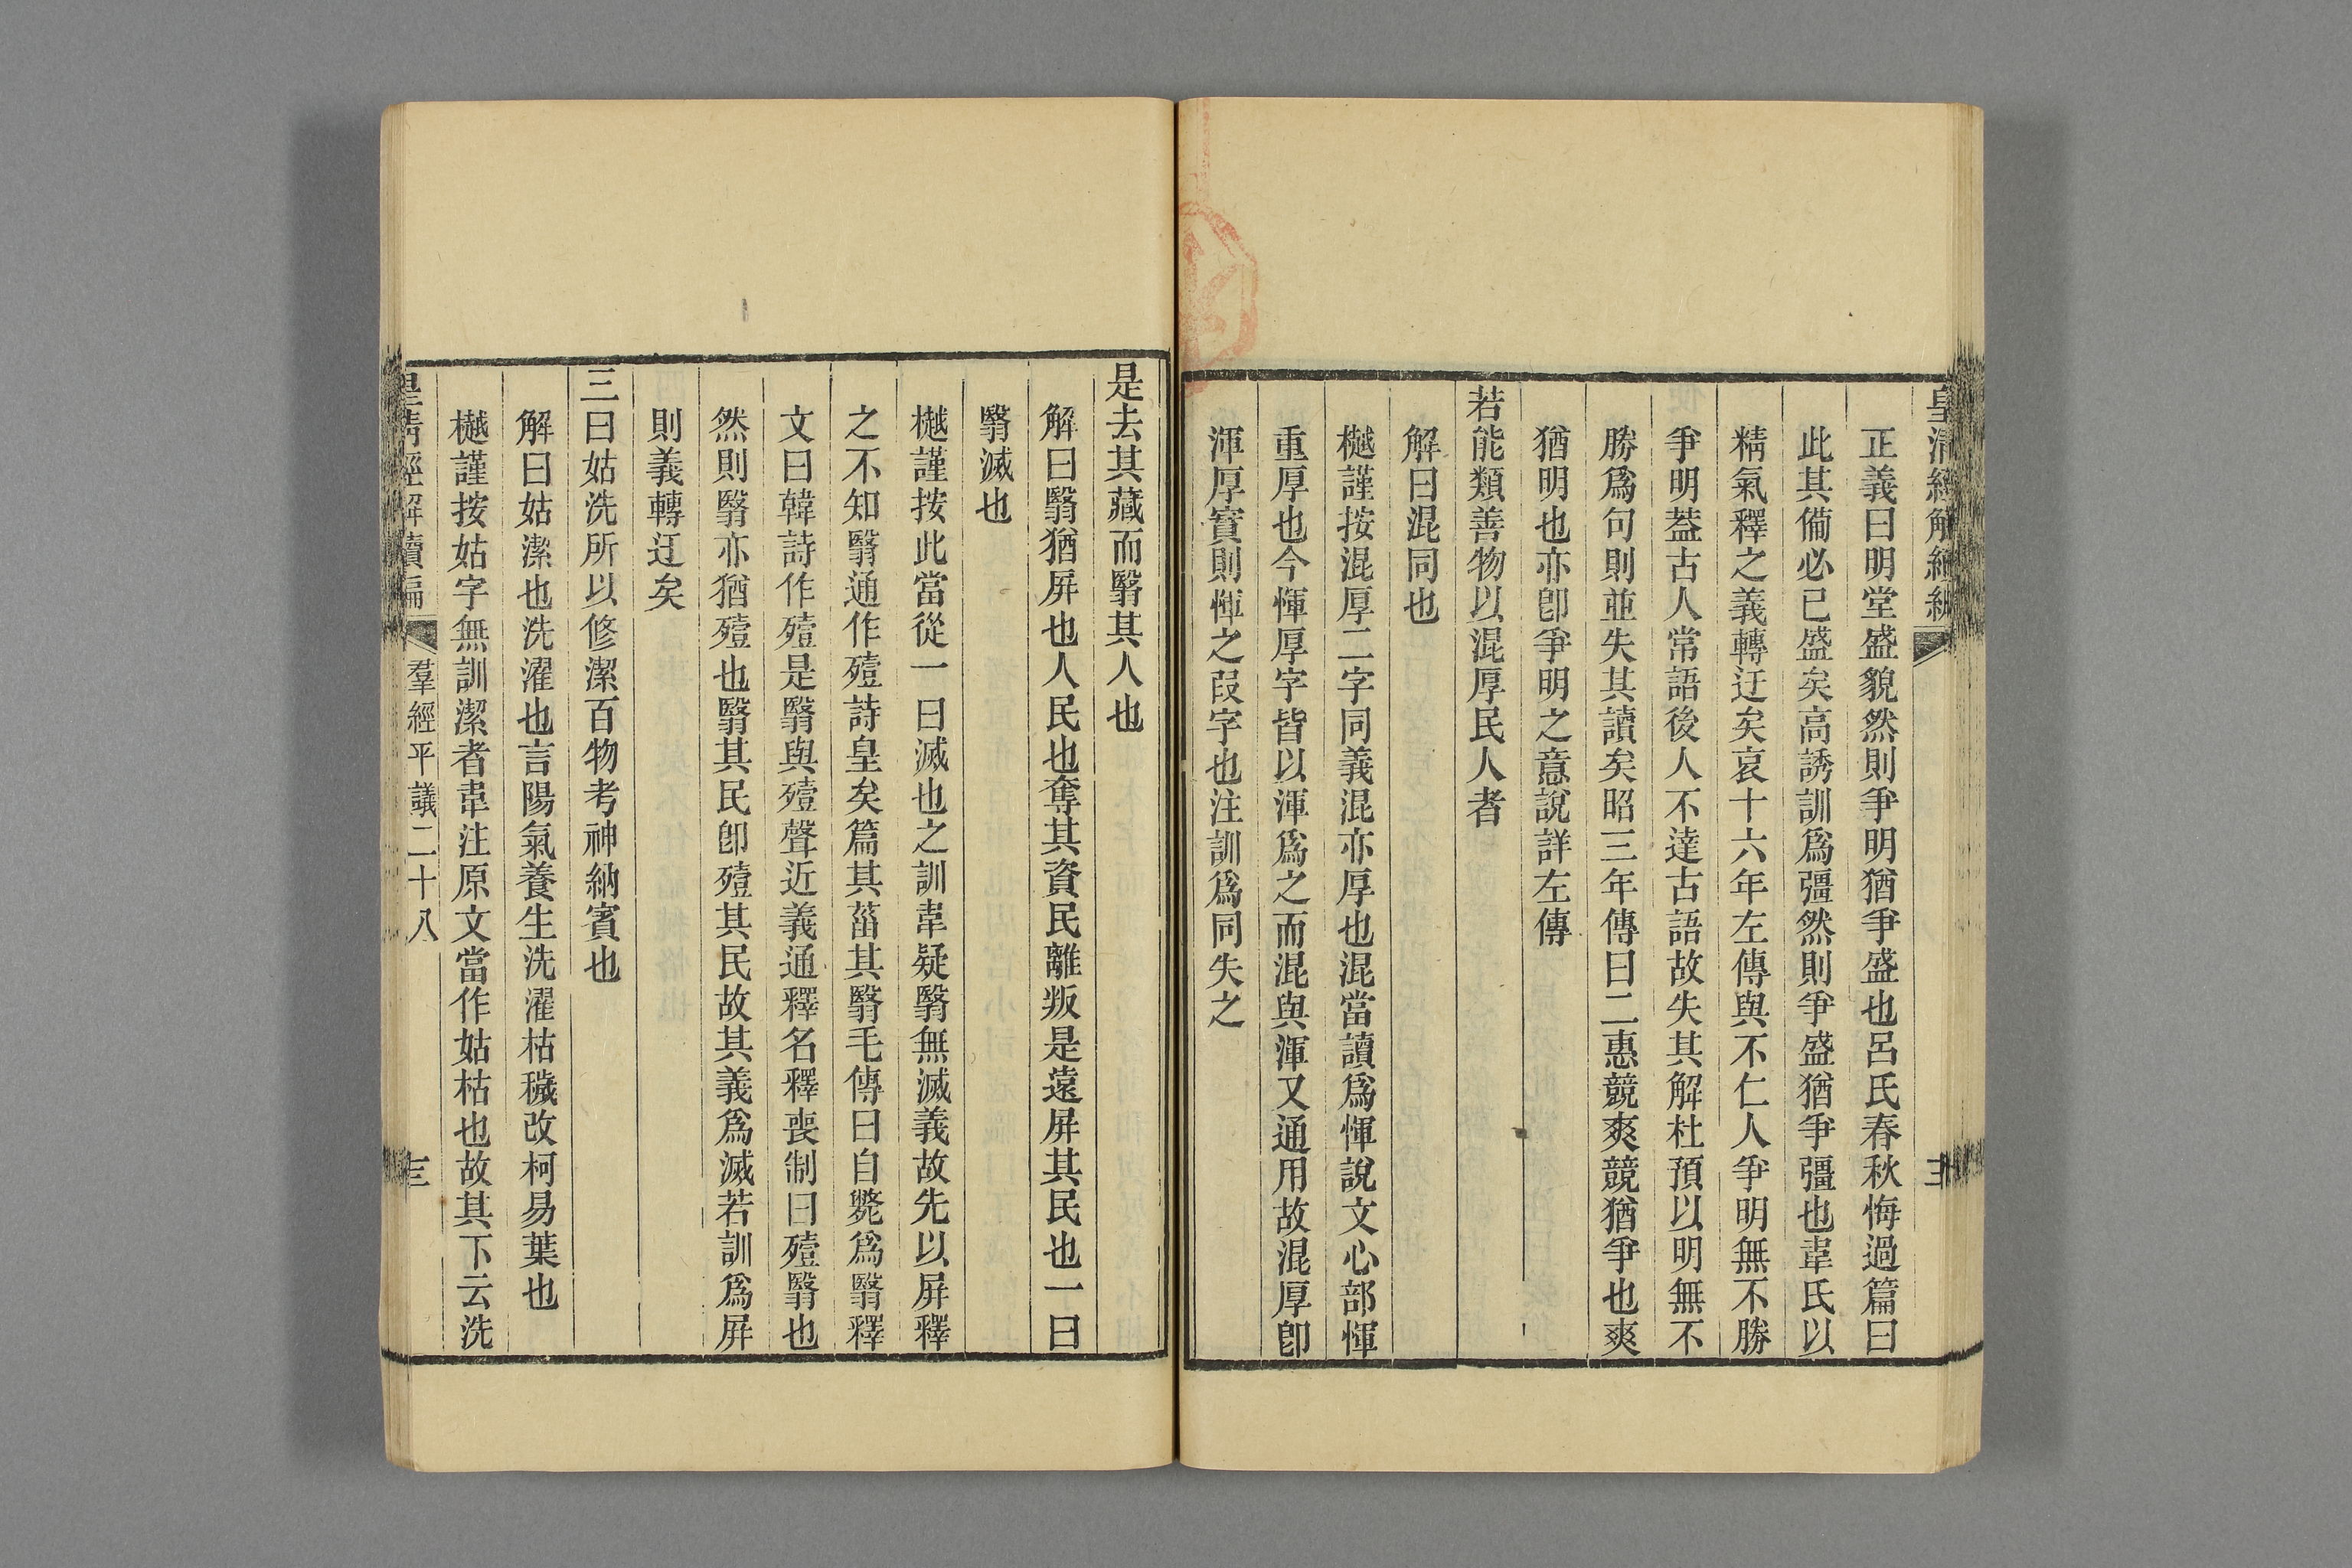 正義曰明堂盛貌然則爭明猶爭盛也呂氏春秋悔過篇曰
此其備必已盛矣高誘訓爲彊然則爭盛猶爭彊也韋氏以
精氣釋之義轉迂矣哀十六年左傳與不仁人爭明無不勝
爭明葢古人常語後人不達古語故失其解杜預以明無不
勝爲句則並失其讀矣昭三年傳曰二惠競爽競猶爭也爽
猶明也亦卽爭明之意說詳左傳
若能類善物以混厚民人者
解曰混同也
樾謹按混厚二字同義混亦厚也混當讀爲惲說文心部惲
重厚也今惲厚字皆以渾爲之而混與渾又通用故混厚卽
渾厚實則惲之叚字也注訓爲同失之
是去其藏而翳其人也
解曰翳猶屏也人民也奪其資民離叛是遠屏其民也一曰
翳滅也
樾謹按此當從一曰滅也之訓韋疑翳無滅義故先以屏釋
之不知翳通作殪詩皇矣篇其菑其翳毛傳曰自斃爲翳釋
文曰韓詩作殪是翳與殪聲近義通釋名釋喪制曰殪翳也
然則翳亦猶殪也翳其民卽殪其民故其義爲滅若訓爲屏
則義轉迂矣
三曰姑洗所以修潔百物考神納賓也
解曰姑潔也洗濯也言陽氣養生洗濯枯穢改柯易葉也
樾謹按姑字無訓潔者韋注原文當作姑枯也故其下云洗
皇清經解續編 羣經平議二十八